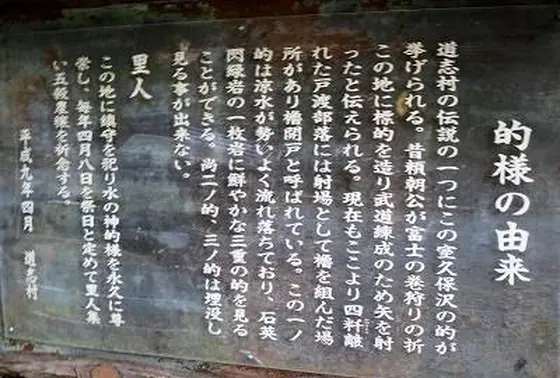 的様の由来
道志村の伝説の一つにこの室久保沢の的が
挙げられる。昔頼朝公が富士の巻狩りの折
この地に標的を造り武道練成のため矢を射
ったと伝えられる。現在もここより四粁離
れた戸渡部落には射場として櫓を組んだ場
所があり櫓開戸と呼ばれている。この一ノ
的は涼水が勢いよく流れ落ちており、石英
閃緑岩の一枚岩に鮮やかな三重の的を見る
ことができる。尚二ノ的、三ノ的は埋没し
見る事が出来ない。
里人
この地に鎮守を祀り水の神的様を永久に尊
崇し、毎年四月八日を祭日と定めて里人集
い五穀豊穣を祈念する。
平成九年四月 道志村